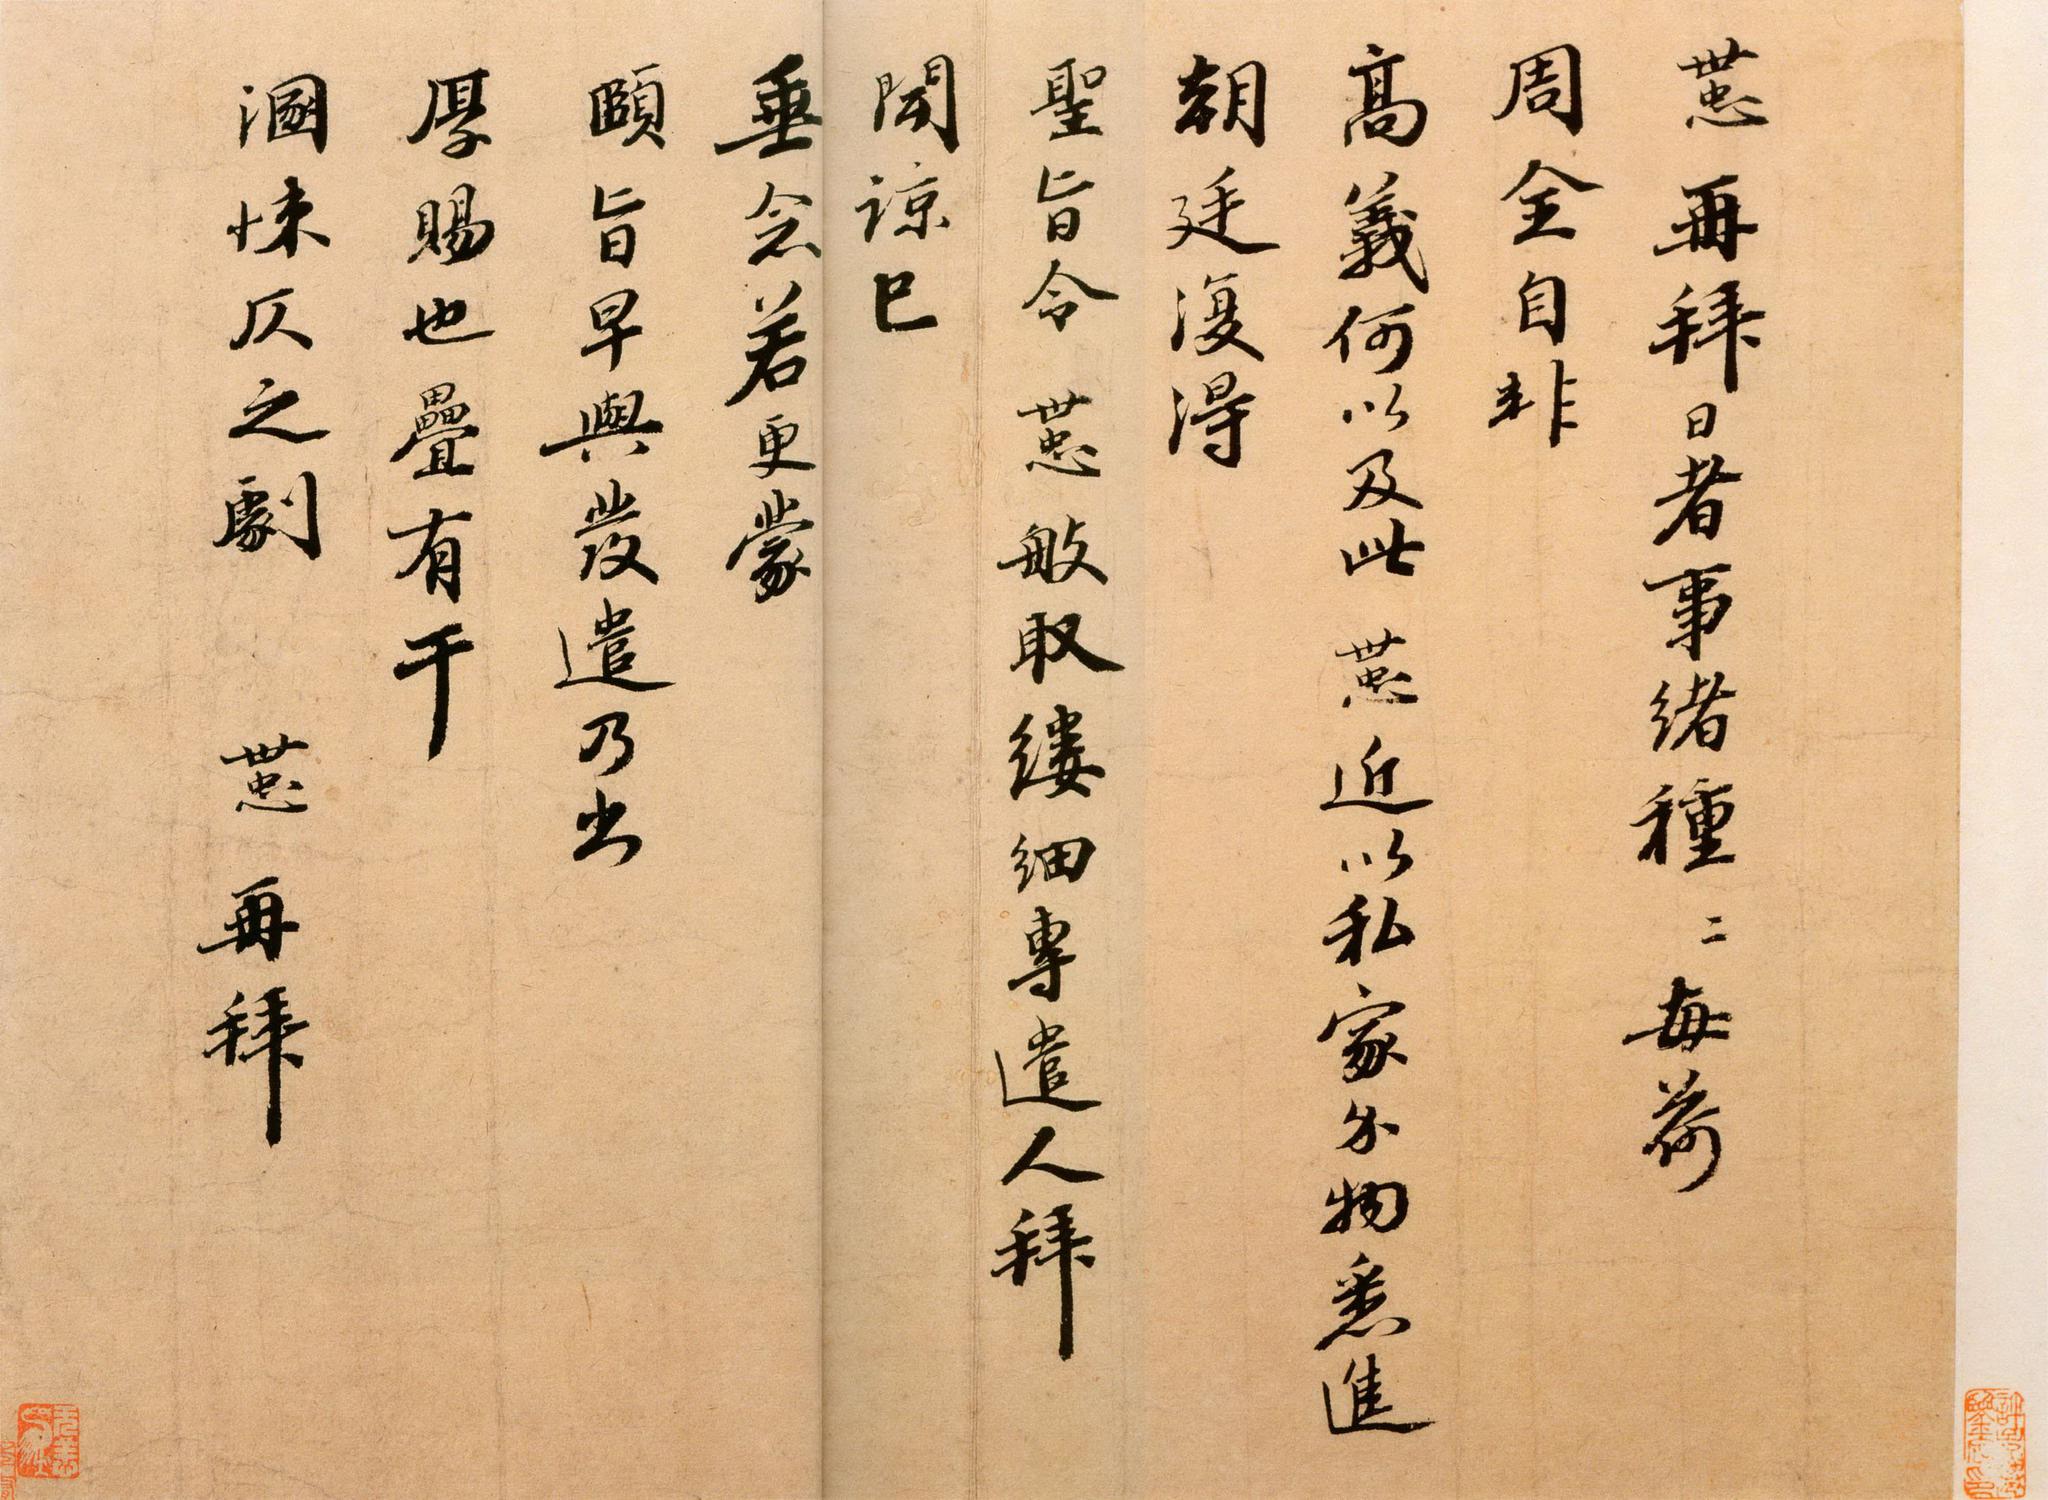 懘再拜日者事緒種二每荷
周全自非
高義何以及此懘近以私家分物悉進
朝廷復得
聖旨令懘敏取縷細專遣人拜
聞諒已
垂念若更蒙
頤旨早與發遣乃出
厚賜也疊有干
溷悚仄之劇懘再拜